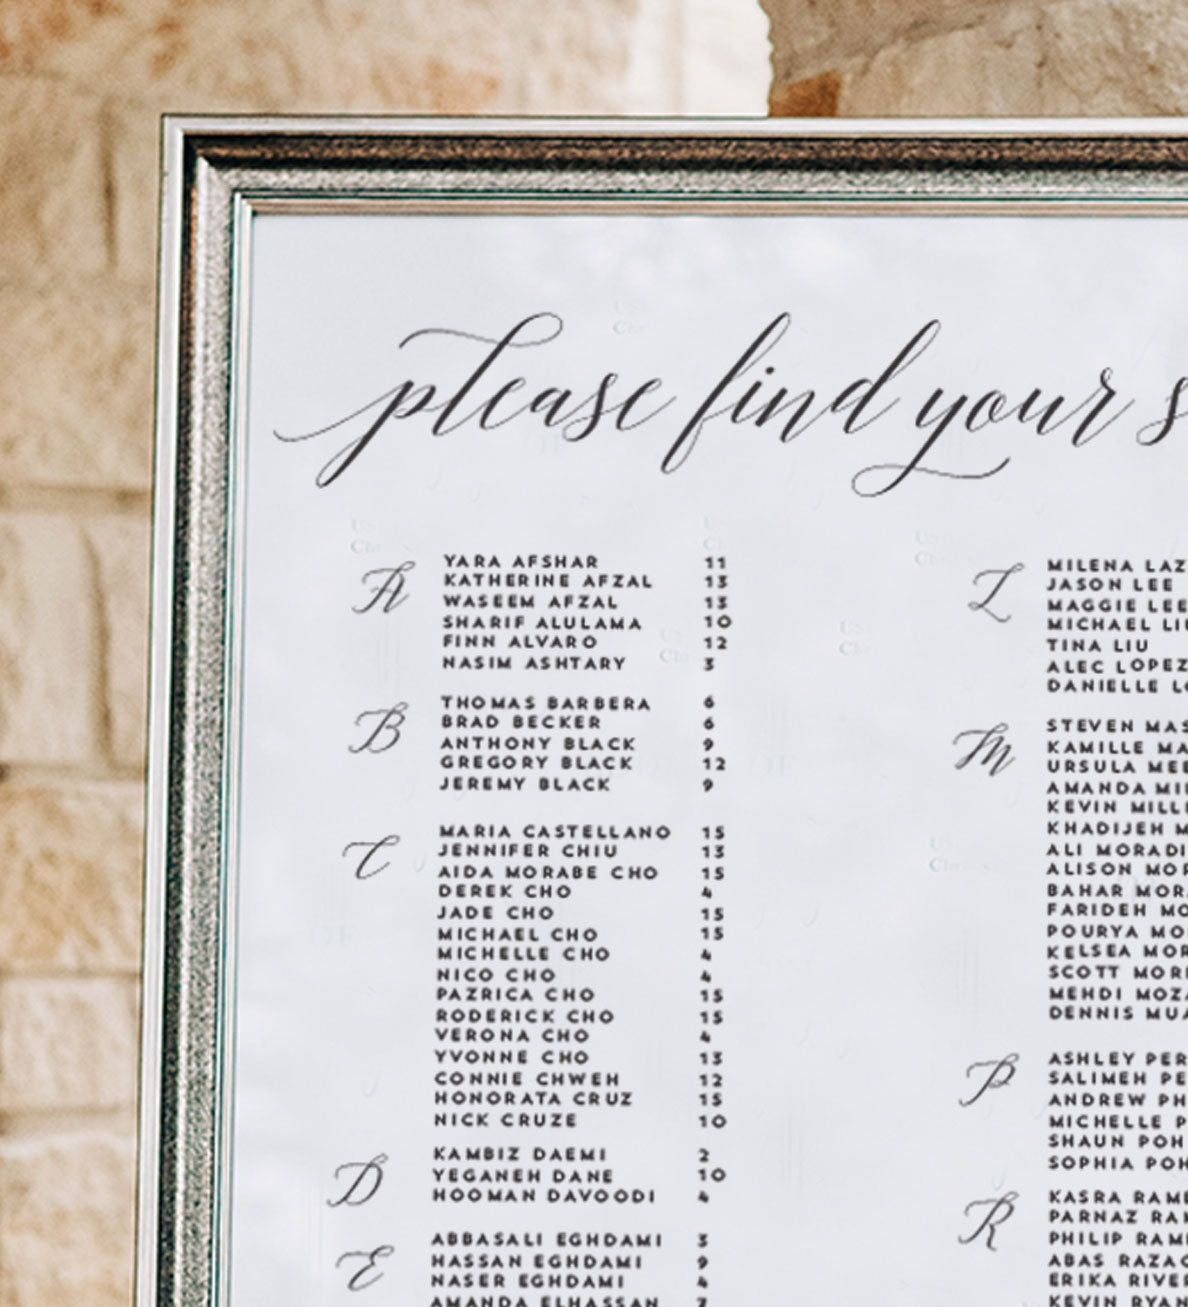 please find your s
A
YARA AFSHAR 11
KATHERINE AFZAL 13
WASEEM AFZAL 13
SHARIF ALULAMA 10
FINN ALVARO 12
NASIM ASHTARY 3
B
THOMAS BARBERA 6
BRAD BECKER 6
ANTHONY BLACK 9
GREGORY BLACK 12
JEREMY BLACK 9
C
MARIA CASTELLANO 15
JENNIFER CHIU 13
AIDA MORABE CHO 15
DEREK CHO 4
JADE CHO 15
MICHAEL CHO 15
MICHELLE CHO 4
NICO CHO 4
PAZRICA CHO 15
RODERICK CHO 15
VERONA CHO 4
YVONNE CHO 13
CONNIE CHWEH 12
HONORATA CRUZ 15
NICK CRUZE 10
D
KAMBIZ DAEMI 2
YEGANEH DANE 10
HOOMAN DAVOODI 4
E
ABBASALI EGHDAMI 3
HASSAN EGHDAMI 9
NASER EGHDAMI 4
AMANDA ELHASSAN 7
L
MILENA LAZ
JASON LEE
MAGGIE LEE
MICHAEL LIU
TINA LIU
ALEC LOPEZ
DANIELLE LO
M
STEVEN MAS
KAMILLE MA
URSULA MEE
AMANDA MIL
KEVIN MILLI
KHADIJEH M
ALI MORADI
ALISON MOR
BAHAR MORA
FARIDEH MO
POURYA MO
KELSEA MOR
SCOTT MORR
MEHDI MOZA
DENNIS MUA
P
ASHLEY PER
SALIMEH PE
ANDREW PH
MICHELLE P
SHAUN POH
SOPHIA POH
R
KASRA RAME
PARNAZ RAM
PHILIP RAMI
ABAS RAZAC
ERIKA RIVER
KEVIN RYAN